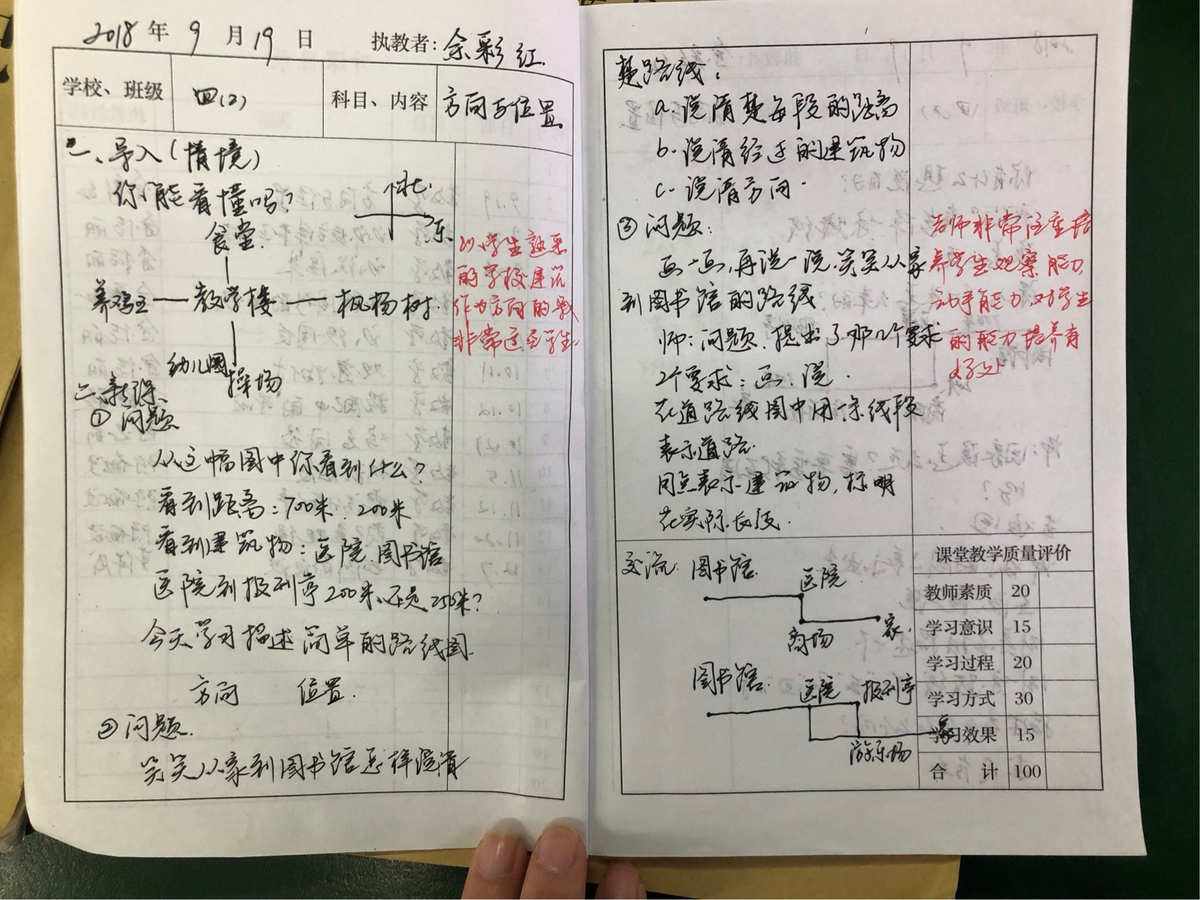 2018 年 9 月 19 日 执教者: 余彩红
学校、班级 四(2) 科目、内容 方向与位置
一、导入(情境)
你能看懂吗?
北
东
食堂
养鸡 教学楼 枫杨树
幼儿园 操场
以学生熟悉
的学校建筑
作为方向的
非常适合学生
二、新课
① 问题
从这幅图中你看到什么?
看到距离:700米、200米
看到建筑物:医院 图书馆
医院到报刊亭200米,还是250米?
今天学习描述简单的路线图
方向 位置.
② 问题.
笑笑从家到图书馆怎样说清
楚路线:
a. 说清楚每段的距离
b. 说清经过的建筑物
c. 说清方向.
③ 问题:
画一画,再说一说,笑笑从家
到图书馆的路线
师:问题.提出了那几个要求
2个要求:画.说.
在道路线图中用一条线段
表示道路
用点表示建筑物,标明
在实际长度.
老师非常注重培
养学生观察能力
动手能力,对学生
的能力培养有
好处
交流: 图书馆 医院
商场 家.
图书馆. 医院 报刊亭
游乐场 家
课堂教学质量评价
教师素质 20
学习意识 15
学习过程 20
学习方式 30
学习效果 15
合 计 100